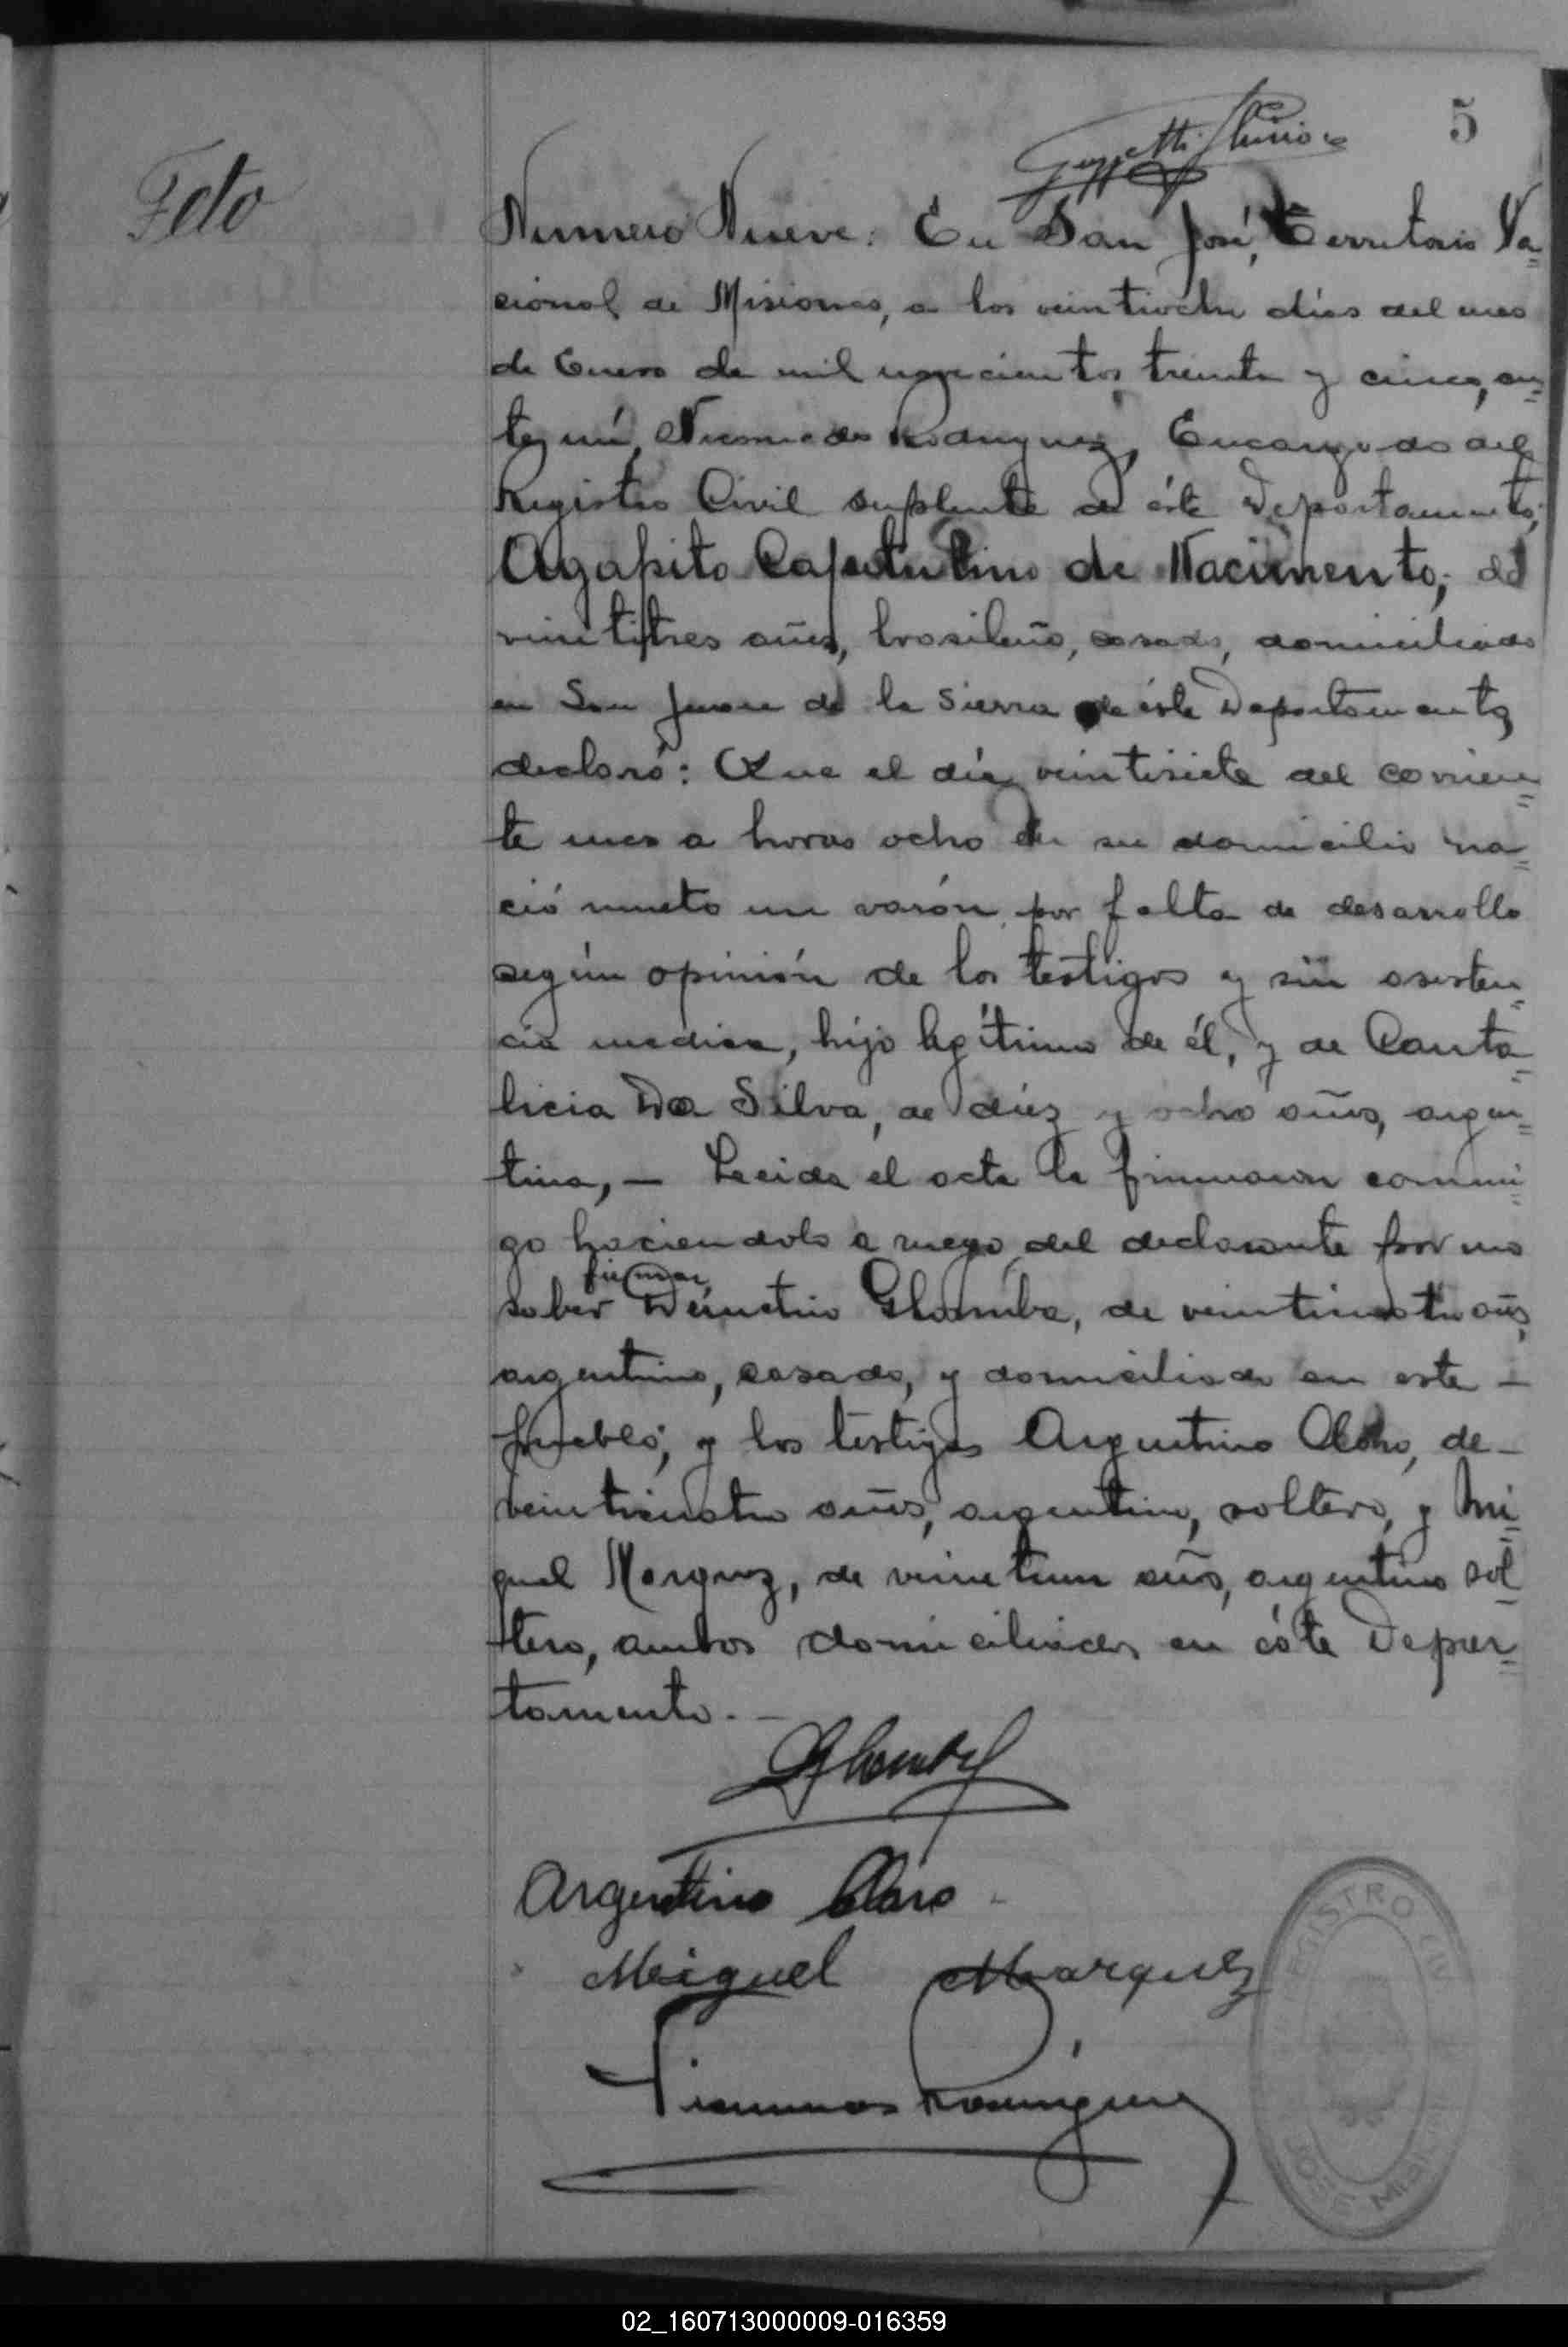 5
Feto
Numero Nueve: En San José, Territorio Na=
cional de Misiones, a los veintiocho días del mes
de Enero de mil novecientos treinta y cinco, an=
te mí, Nicomedes Rodriguez, Encargado del
Registro Civil suplente de éste Departamento;
Agapito Capistulino de Nacimento; de
veintitres años, brasileño, casado, domiciliado
en San Juan de la Sierra de éste Departamento,
declaró: Que el día veintisiete del corrien=
te mes a horas ocho en su domicilio na=
ció mueto un varón por falta de desarrollo
según opinión de los testigos y sin asisten=
cia medica, hijo legítimo de él, y de Canta=
licia Da Silva, de diez y ocho años, argen=
tina, — Leida el acta la firmaron conmi=
go haciendolo a ruego del declarante por no
firmar,
saber Demetrio Ghomba, de veinticuatro años,
argentino, casado, y domiciliado en este —
pueblo; y los testigos Argentino Claro, de —
veinticuatro años, argentino, soltero, y Mi=
guel Marquez, de veintiun años, argentino sol=
tero, ambos domiciliados en éste Depar=
tamento. —
Argentino Claro
Miguel Marquez
Nicomedes Rodriguez
REGISTRO CIVIL
JOSÉ MISIONES
02_160713000009-016359